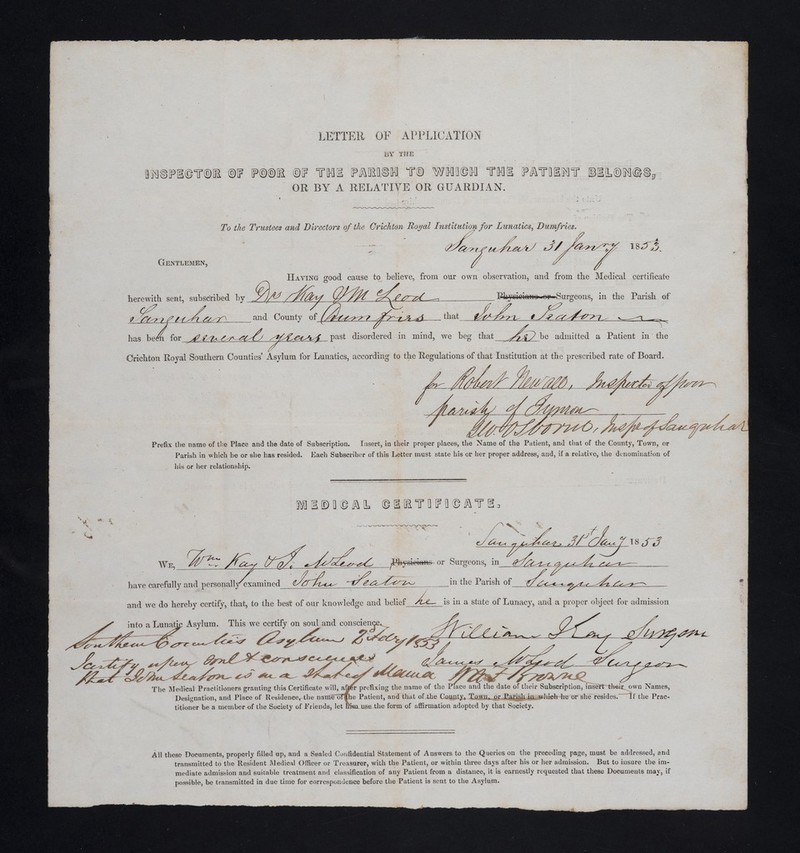 LETTER OF APPLICATION
BY THE
INSPECTOR OF POOR OF THE PARISH TO WHICH THE PATIENT BELONGS,
OR BY A RELATIVE OR GUARDIAN.
To the Trustees and Directors of the Crichton Royal Institution for Lunatics, Dumfries.
Sanquhar 31 Janry 1853.
GENTLEMEN,
HAVING good cause to believe, from our own observation, and from the Medical certificate
herewith sent, subscribed by Drs Kay & McLeod Physicians or Surgeons, in the Parish of
Sanquhar and County of Dumfries that John Seaton
has been for several years past disordered in mind, we beg that he be admitted a Patient in the
Crichton Royal Southern Counties' Asylum for Lunatics, according to the Regulations of that Institution at the prescribed rate of Board.
for Robert Newall, Inspector of poor
parish of Tynron
Geo Osborne, Inspr of Sanquhar
Prefix the name of the Place and the date of Subscription. Insert, in their proper places, the Name of the Patient, and that of the County, Town, or
Parish in which he or she has resided. Each Subscriber of this Letter must state his or her proper address, and, if a relative, the denomination of
his or her relationship.
MEDICAL CERTIFICATE.
Sanquhar 31st Jany 1853
WE, Wm Kay & J. McLeod Physicians or Surgeons, in Sanquhar
have carefully and personally examined John Seaton in the Parish of Sanquhar
and we do hereby certify, that, to the best of our knowledge and belief he is in a state of Lunacy, and a proper object for admission
into a Lunatic Asylum. This we certify on soul and conscience.
William Kay Surgeon
James McLeod Surgeon
Southern Counties Asylum 2d Feby 1853
I certify upon soul & conscience
that John Seaton is in a state of Mania W A F Browne
The Medical Practitioners granting this Certificate will, after prefixing the name of the Place and the date of their Subscription, insert their own Names,
Designation, and Place of Residence, the name of the Patient, and that of the County, Town, or Parish in which he or she resides. If the Prac-
titioner be a member of the Society of Friends, let him use the form of affirmation adopted by that Society.
All these Documents, properly filled up, and a Sealed Confidential Statement of Answers to the Queries on the preceding page, must be addressed, and
transmitted to the Resident Medical Officer or Treasurer, with the Patient, or within three days after his or her admission. But to insure the im-
mediate admission and suitable treatment and classification of any Patient from a distance, it is earnestly requested that these Documents may, if
possible, be transmitted in due time for correspondence before the Patient is sent to the Asylum.